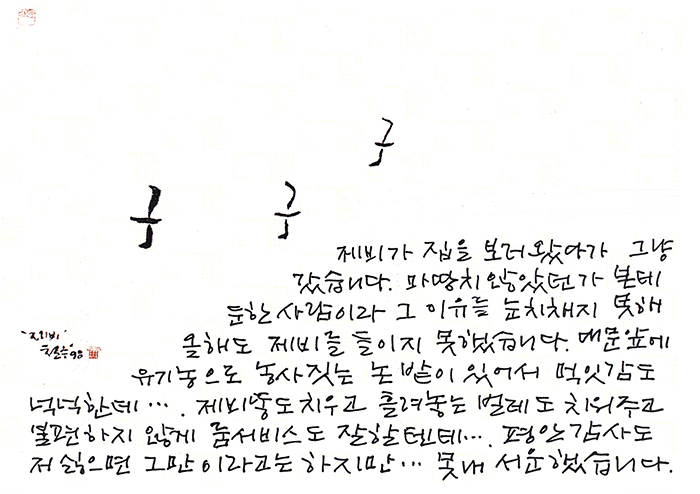 구
구 구
제비가 집을 보러왔다가 그냥
갔습니다. 마땅치 않았던가 본데
둔한 사람이라 그 이유를 눈치채지 못해
올해도 제비를 들이지 못했습니다. 대문앞에
유기농으로 농사짓는 논밭이 있어서 먹잇감도
넉넉한데···. 제비똥도치우고 흘려놓는 벌레도 치워주고
불편하지 않게 룸서비스도 잘할텐데···. 평안감사도
저 싫으면 그만이라고는 하지만··· 못내 서운했습니다.
철수98